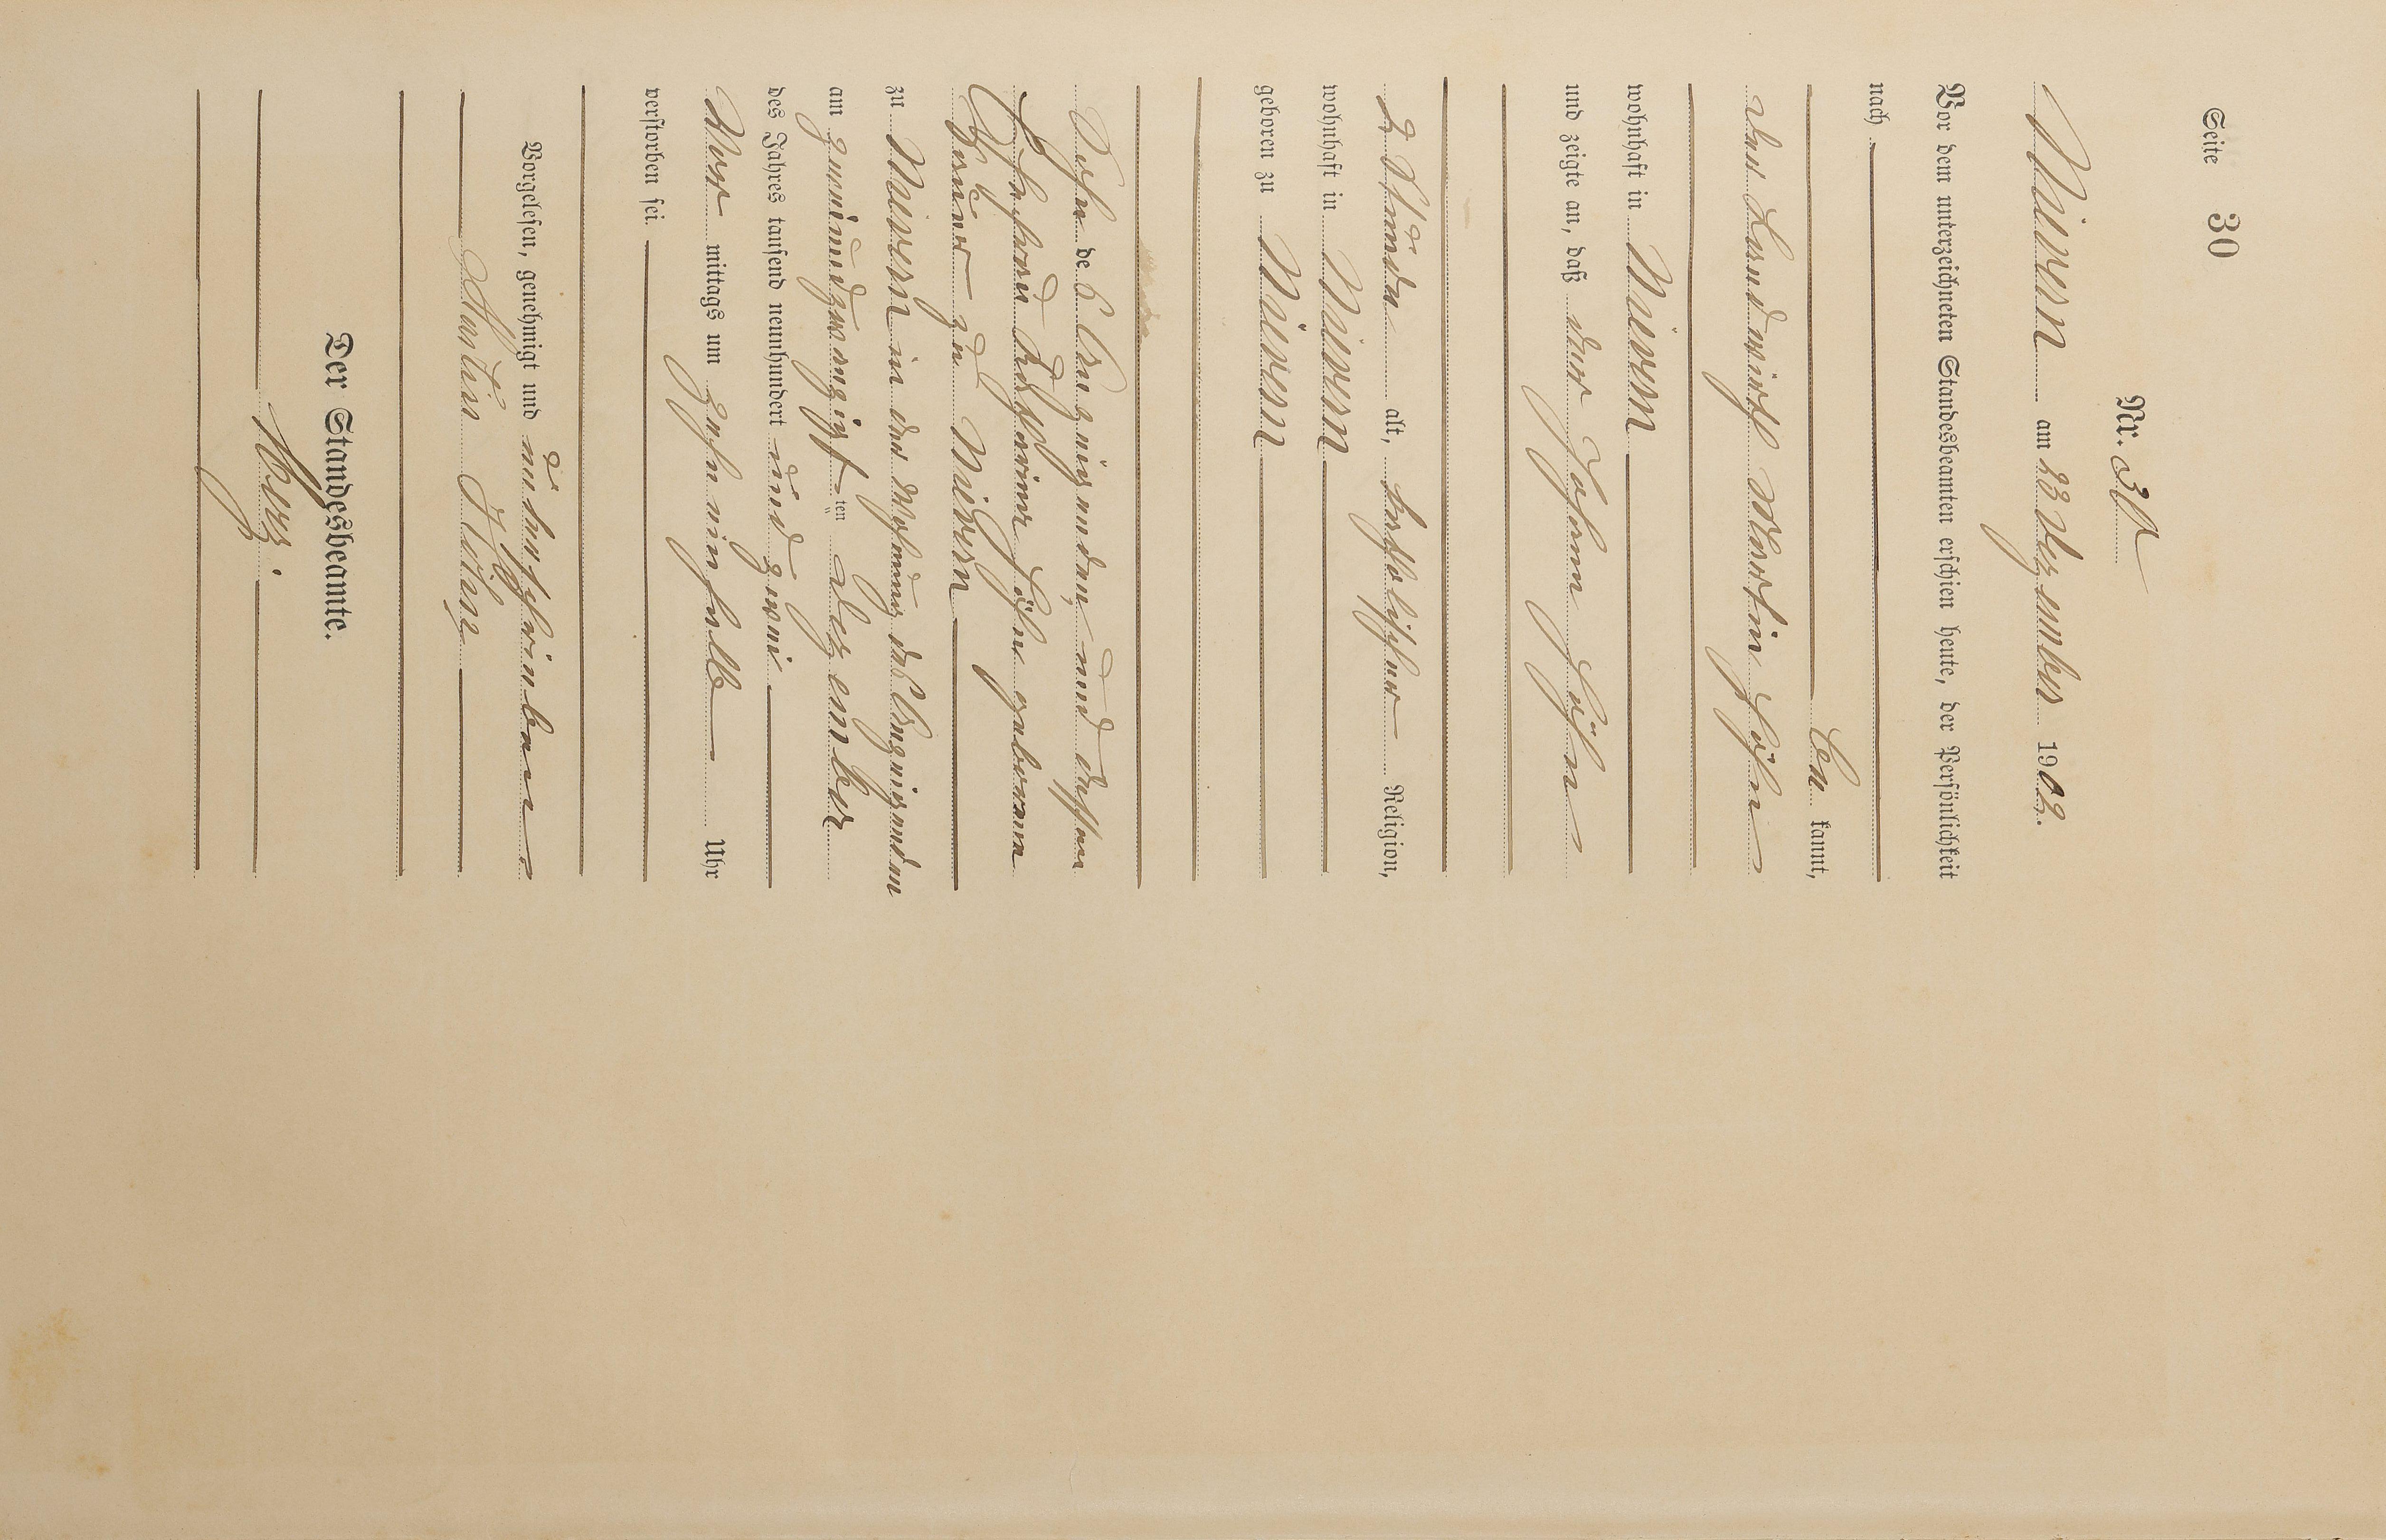 Seite 30
Nr. 30
Nievern am 23 Dezember 1902.
Vor dem unterzeichneten Standesbeamten erschien heute, der Persönlichkeit
nach
be kannt,
der Landwirth Martin Höhn
wohnhaft in Nievern
und zeigte an, daß der Johann Höhn
2 Stunden alt, katholischer Religion,
wohnhaft in Nievern
geboren zu Nievern
Sohn des Anzeigenden, und dessen
Ehefrau Katharina Höhn geborene
zu Nievern
zu Nievern in der Wohnung des Anzeigenden
am zweiundzwanzigsten Dezember
des Jahres tausend neunhundert und zwei
Vor mittags um zehn einhalb Uhr
verstorben sei
Vorgelesen, genehmigt und unterschrieben
Martin Höhn
Der Standesbeamte.